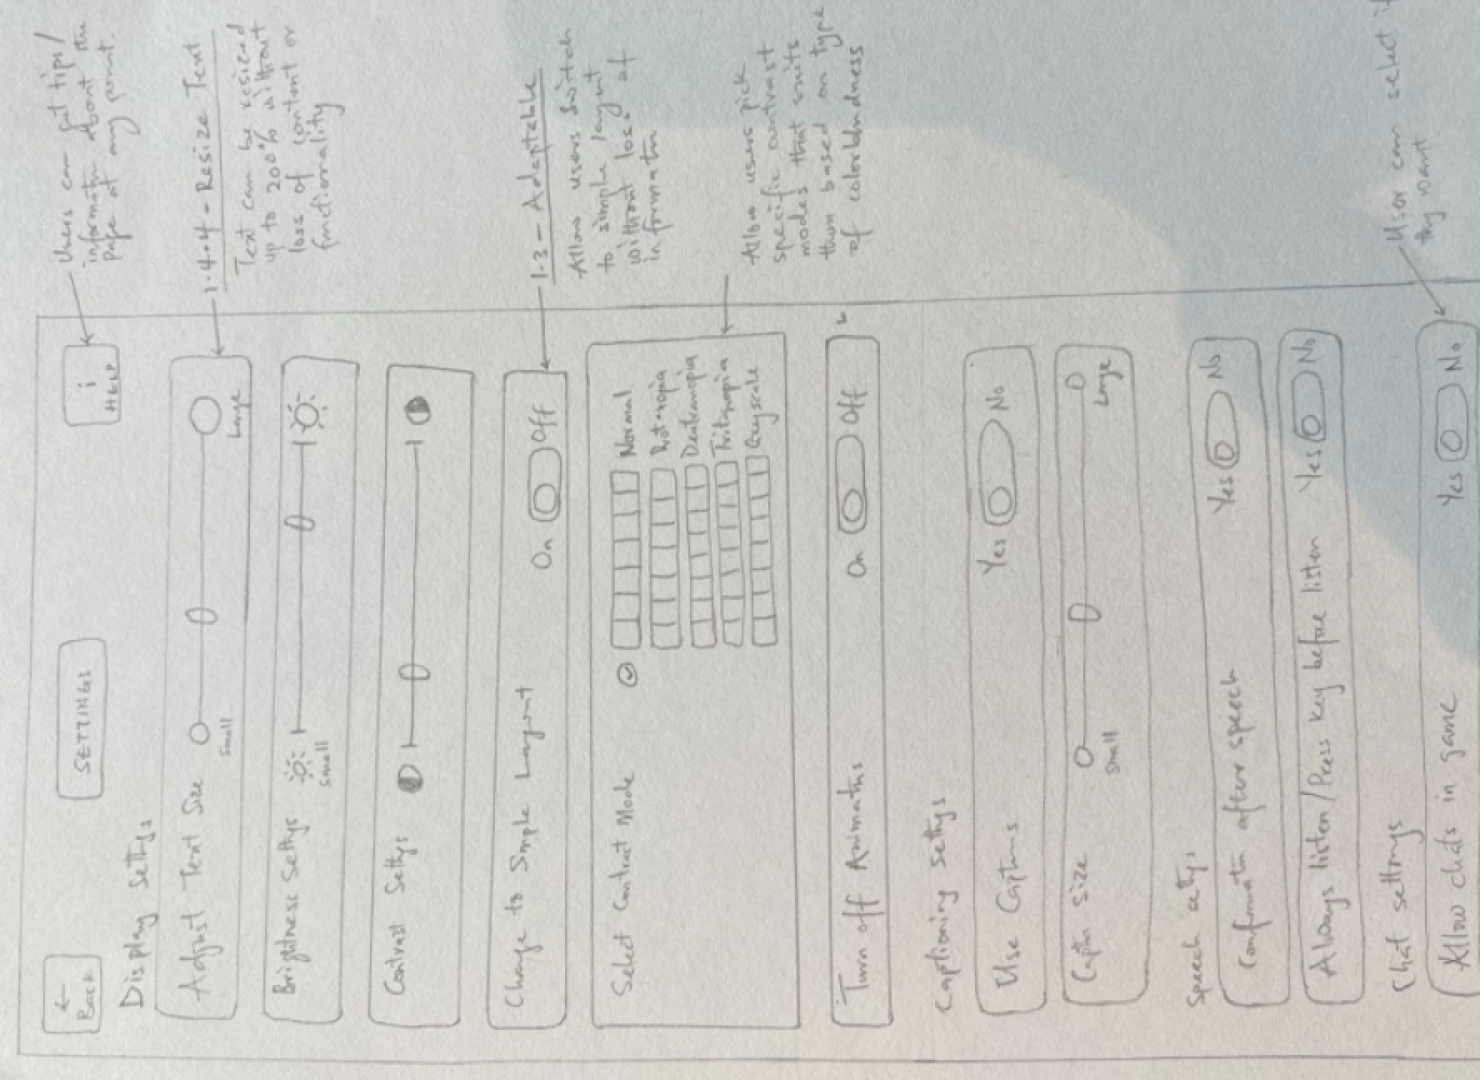 ← Back
SETTINGS
i
HELP
Users can get tips/
information about the
page at any point.
Display settgs
Adjust Text Size
Small
Large
1.4.4 - Resize Text
Text can be resized
up to 200% without
loss of content or
functionality
Brightness Settgs
Small
Contrast Settgs
Change to Simple Layout
On
Off
1.3 - Adaptable
Allow users switch
to simple layout
without loss of
informatn
Select Contrast Mode
Normal
Protanopia
Deutranopia
Tritanopia
Greyscale
Allow users pick
specific contrast
modes that suits
them based on type
of colorblindness
Turn off Animatns
On
Off
Captioning settgs
Use Captns
Yes
No
Captn size
Small
Large
Speech settgs
Confirmatn after speech
Yes
No
Always listen/Press key before listen
Yes
No
Chat settings
Allow chats in game
Yes
No
User can select if
they want